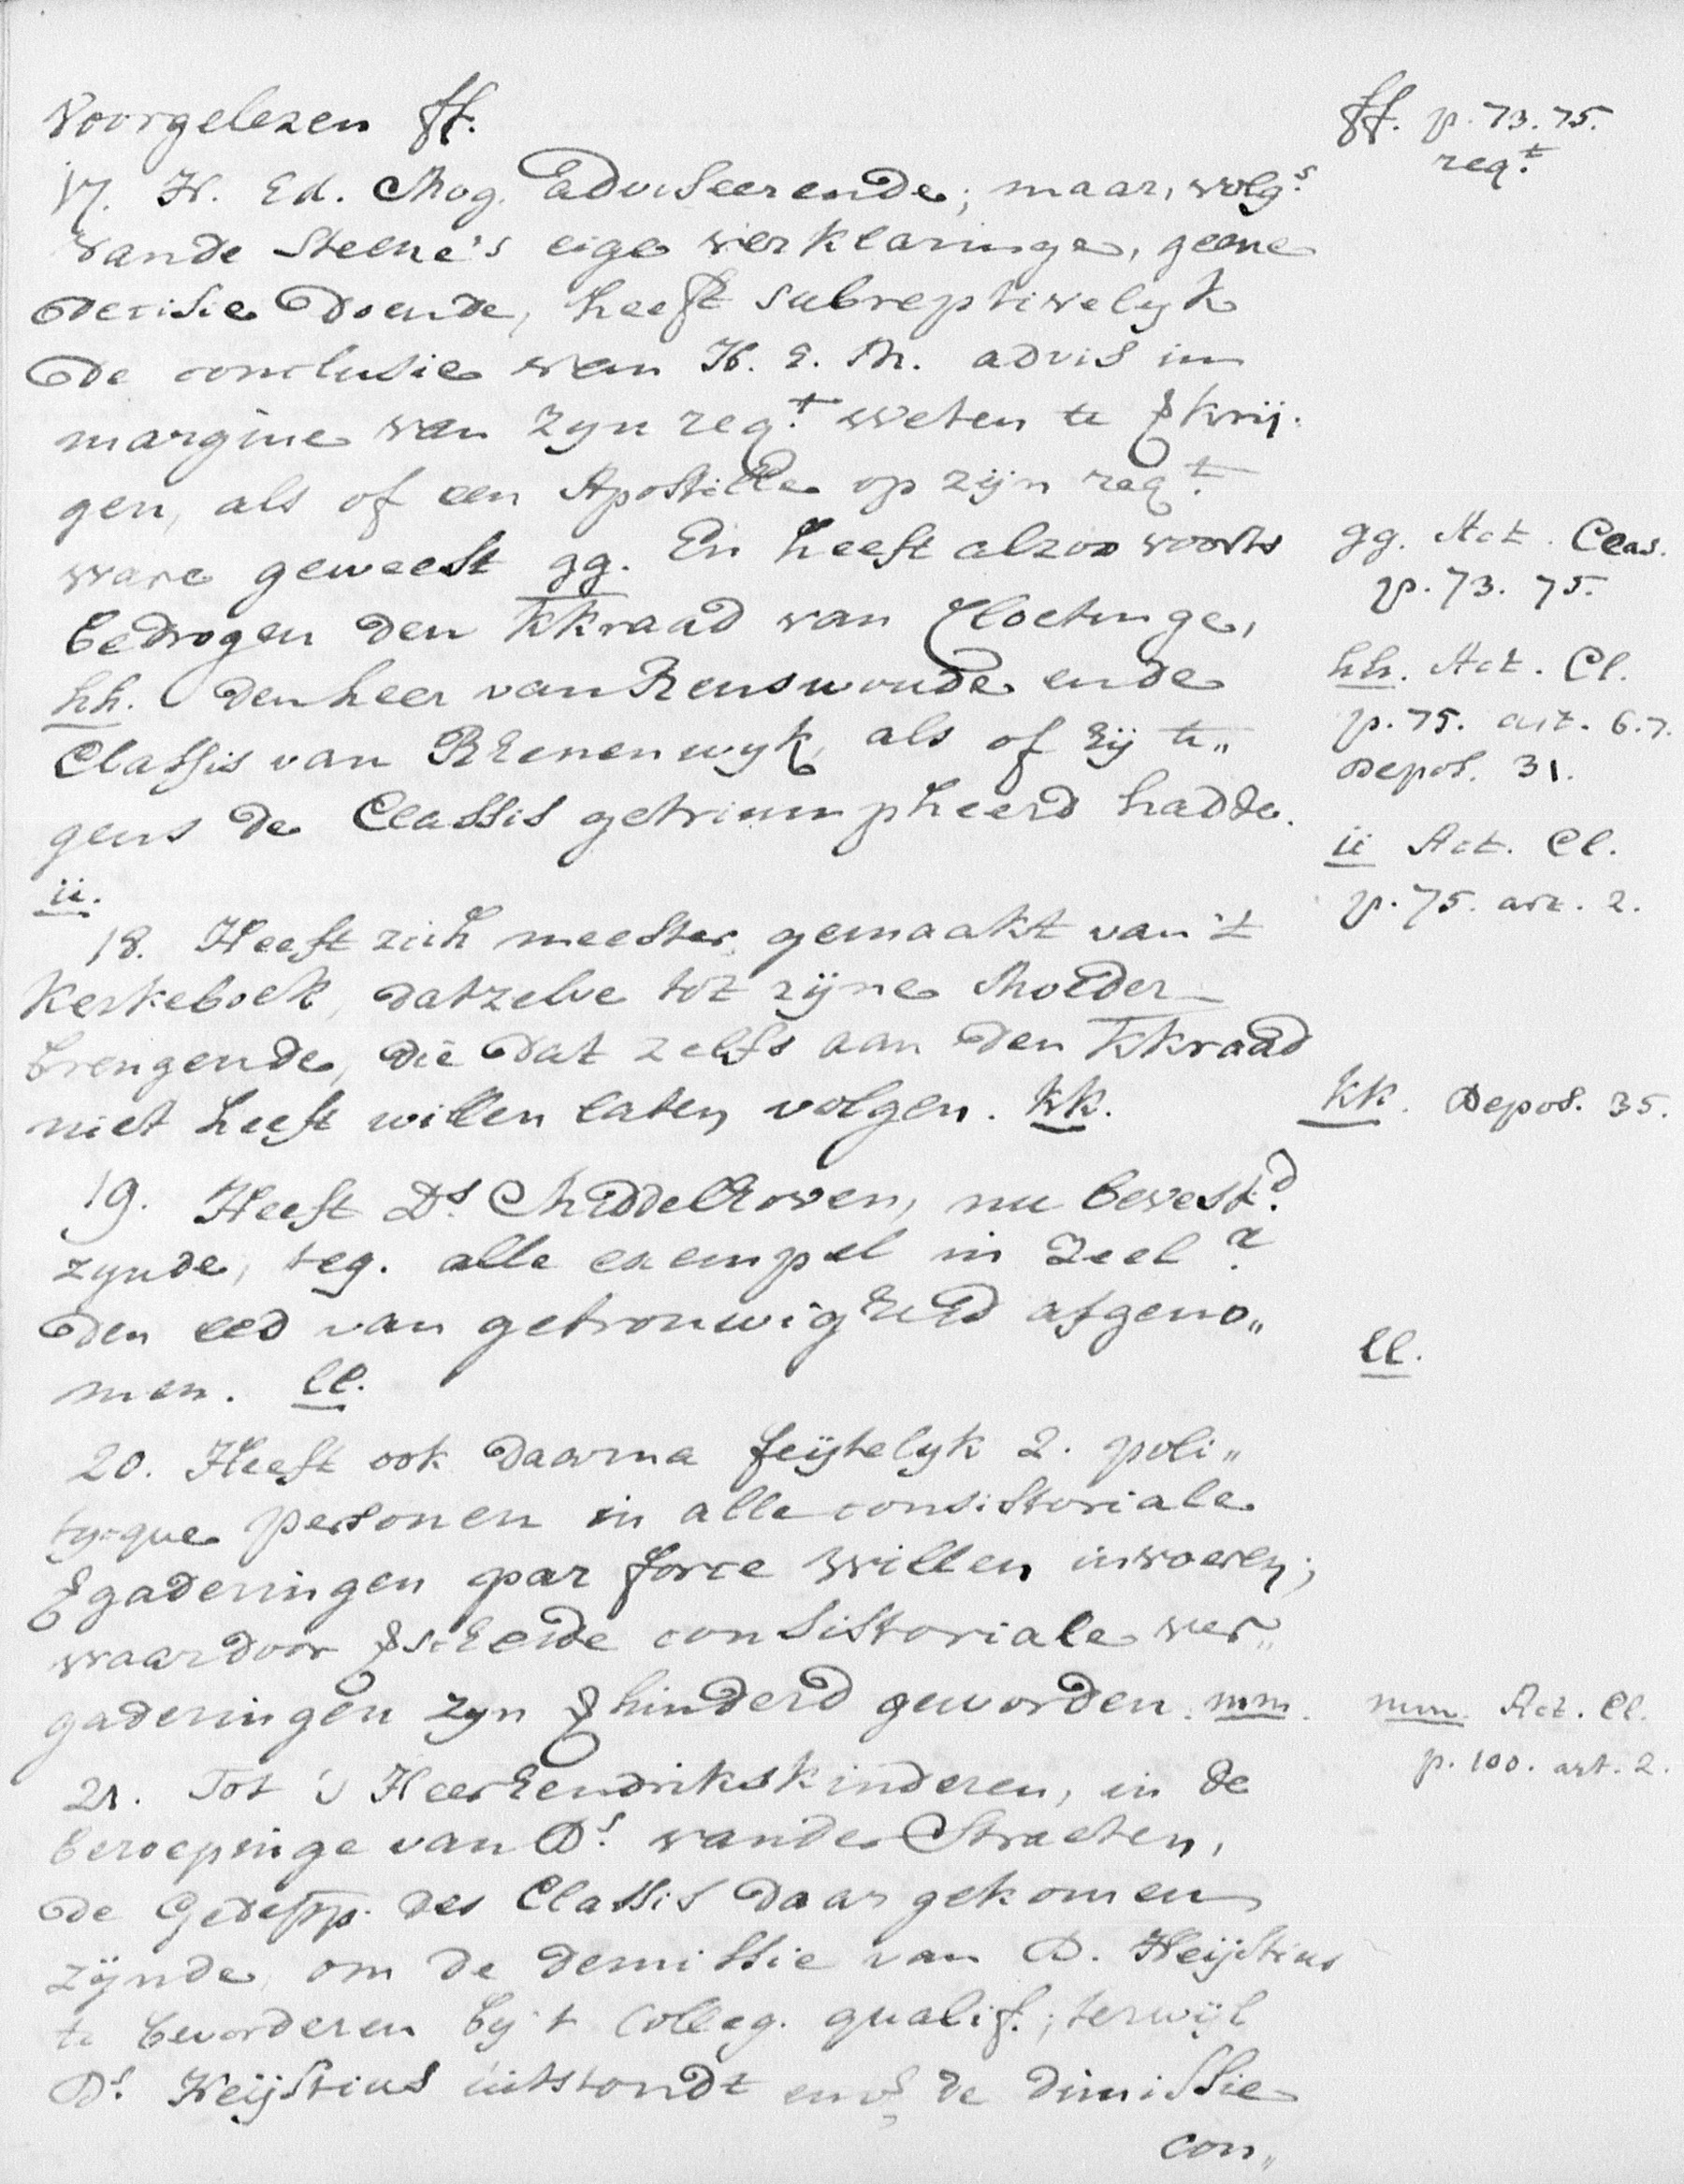 Voorgelezen ff.
17. H. Ed. Mog. Adviseerende; maar, volgs.
vande Steene's eige verklaringe, geene
decisie doende, heeft subreptivelyk
de conclusie van H. E. M. advis in
margine van zyn reqt. weten te krij-
gen, als of een Apostille op zijn reqt.
ware geweest gg. En heeft alzoo voorts
bedrogen den kkraad van Cloetinge,
hh. den heer van Renswoude ende
Classis van Rhenen wyk, als of hij te„
gens de Classis getriumpheerd hadde.
ii.
18. Heeft zich meester gemaakt van 't
Kerkeboek, datzelve tot zijne Moeder
brengende, die dat zelfs aan den kkraad
niet heeft willen laten volgen. kk.
19. Heeft Ds. Middelhoven, nu bevestd.
zynde, teg. alle exempel in Zeeld.
den eed van getrouwigheid afgeno„
men. ll.
20. Heeft ook daarna feijtelyk 2. poli„
tyque personen in alle consistoriale
gaderingen par force willen invoeren;
waardoor scheide consistoriale ver„
gaderingen zyn hinderd geworden. mm.
21. Tot 's Heerhendrikskinderen, in de
beroepinge van Ds. vande Straeten,
de Gedepp. des Classis daar gekomen
zijnde, om de demissie van D. Heijstius
te bevorderen by 't Colleg. qualif.; terwijl
Ds. Heijstius uitstondt de dimissie
con„
ff. p. 73. 75.
reqt.
gg. Act. Clas.
p. 73. 75.
hh. Act. Cl.
p. 75. art. 6. 7.
Depos. 31.
ii Act. Cl.
p. 75. art. 2.
kk. Depos. 35.
ll.
mm. Act. Cl.
p. 100. art. 2.